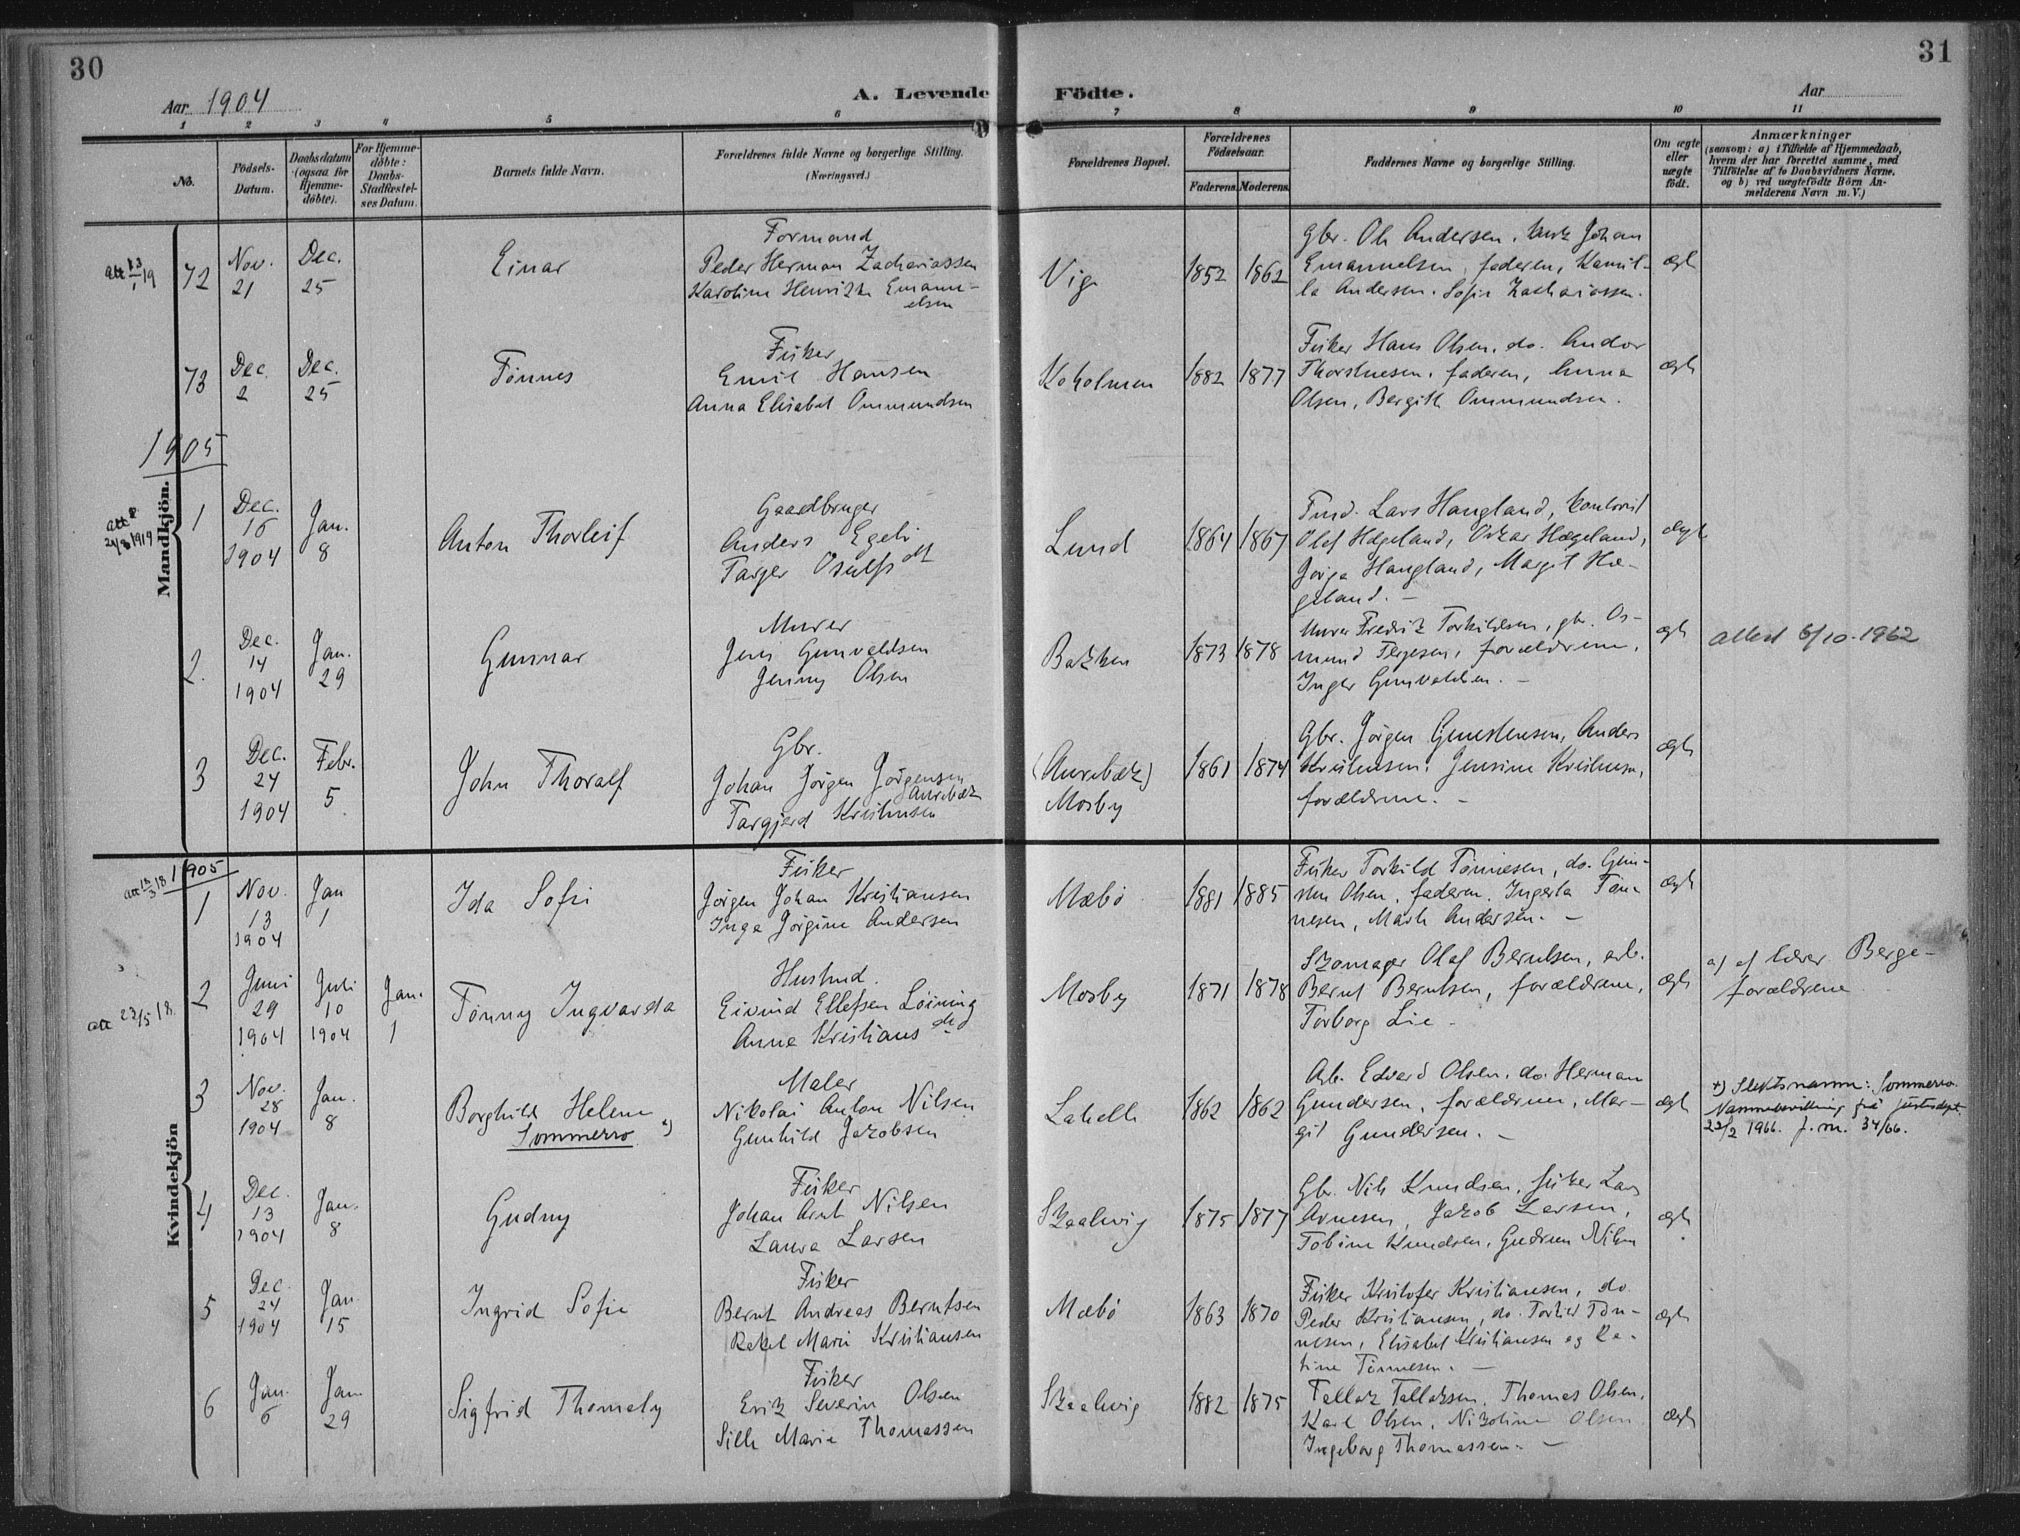 30
31
Aar 1904
A. Levende Födte.
Aar
1 2 3 4 5 6 7 8 9 10 11
No.
Födsels-Datum.
Daabsdatum (ogsaa for Hjemme-döbte).
For Hjemme-döbte: Daabs-Stadfæstel-ses Datum.
Barnets fulde Navn.
Forældrenes fulde Navne og borgerlige Stilling. (Næringsvei.)
Forældrenes Bopæl.
Forældrenes Födselsaar.
Faderens. Moderens.
Faddernes Navne og borgerlige Stilling.
Om ægte eller uægte födt.
Anmærkninger
(saasom: a) i Tilfælde af Hjemmedaab,
hvem der har forrettet samme, med
Tilföielse af to Daabsvidners Navne.
og b) ved uægtefödte Börn An-
melderens Navn m. V.)
Mandkjön.
72
Nov. 21
Dec. 25
Einar
Formand
Peder Herman Zachariassen
Karoline Henrikke Emanu-
elsen
Vige
1852 1862
Gbr. Ole Andersen, Johan
Emanuelsen, faderen, Kamil-
la Andersen. Sofie Zachariassen.
ægte
73
Dec. 2
Dec. 25
Tønnes
Fisker
Emil Hansen
Anna Elisabet Ommundsen
Koholmen
1882 1877
Fisker Hans Olsen, do. Andor
Thorstnesen, faderen, Anna
Olsen, Bergith Ommundsen.
ægte
1905
1
Dec. 16 1904
Jan. 8
Anton Thorleif
Gaardbruger
Anders Egeli
Targer Osulfsdt
Lund
1864 1867
Lars Haugland,
Olof Hægeland, Oskar Hægeland,
Haugland, Margit Hæ-
geland. -
ægte
2.
Dec. 14 1904
Jan. 29
Gunnar
Murer
Jens Gunvaldsen
Jenny Olsen
Bakken
1873 1878
Murer Fredrik Torkildsen, gbr. Os-
mund Tergesen, forældrene,
Inger Gunvaldsen. -
ægte
attest 6/10-1962
3
Dec. 24 1904
Febr. 5
John Thoralf
Gbr.
Johan Jörgen Jörgensen
Aurebæk
Targjerd Kristensen
(Aurebæk)
Mosby
1861 1874
Gbr. Jörgen Gunstensen, Anders
Kristensen. Jensine Kristensen,
forældrene. -
ægte
Kvindekjön
1905
1
Nov. 13 1904
Jan 1
Ida Sofie
Fisker
Jörgen Johan Kristiansen
Inga Jörgine Andersen
Mæbö
1881 1885
Fisker Torkild Tönnesen, do. Gun-
sten Olsen, faderen. Ingerta Tøn-
nesen, Marte Andersen. -
ægte
2
Juni 29 1904
Juli 10 1904
Jan. 1
Tönny Ingvarda
Husmd.
Eivind Ellefsen Löining
Anne Kristiansdtr
Mosby
1871 1878
Skomager Olaf Berntsen, arb.
Bernt Berntsen, forældrene,
Torborg Lie -
ægte
a) af lærer Berge-
forældrene
3
Nov. 28 1904
Jan. 8
Borghild Helene
Sommerro x)
Maler
Nikolai Anton Nilsen
Gunhild Jakobsen
Lahelle
1862 1862
Arb. Edvard Olsen, do. Herman
Gundersen, forældrene, Mar-
git Gundersen. -
ægte
x) Slektsnamn: Sommerro.
Namnebevilling frå Justisdept.
22/2 1966. j. nr. 34/66.
4
Dec. 13 1904
Jan. 8
Gudny
Fisker
Johan Arnt Nilsen
Laura Larsen
Skaalevig
1875 1877
Gbr. Nils Knudsen, fisker Lars
Arnesen, Jakob Larsen,
Tobine Knudsen, Gudrun Nilsen
ægte
5
Dec. 24 1904
Jan. 15
Ingrid Sofie
Fisker
Bernt Andreas Berntsen
Rakel Marie Kristiansen
Mæbö
1863 1870
Fisker Kristofer Kristiansen, do
Peder Kristiansen, do. Torkel Tön-
nesen, Elisabet Kristiansen og Be-
tine Tönnesen. -
ægte
6
Jan. 6
Jan 29
Sigfrid Thomely
Fisker
Erik Severin Olsen
Sille Marie Thomassen
Skaalevig
1882 1875
Tallak Tallaksen, Thomas Olsen,
Karl Olsen, Nikoline Olsen
Ingeborg Thomassen. -
ægte